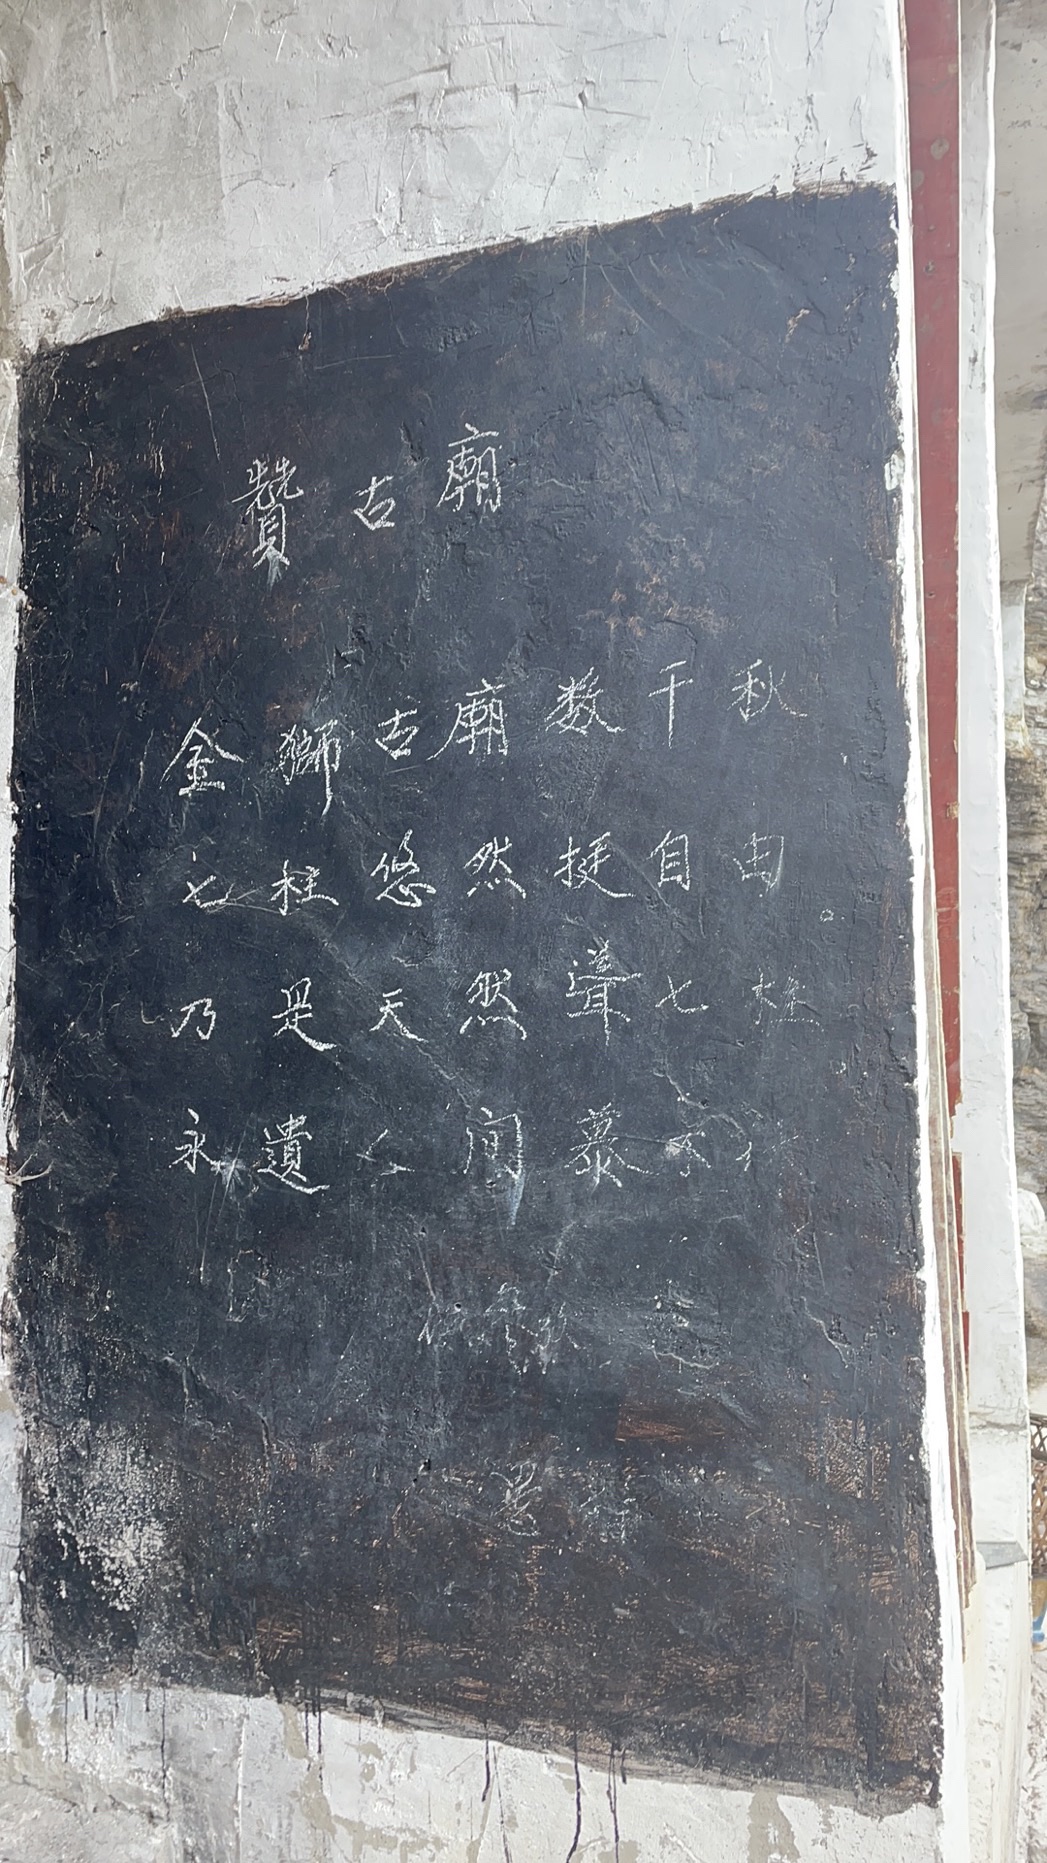 贊古廟
金獅古廟数千秋
七柱悠然挺自由。
乃是天然聳七柱
永遺人间慕不休